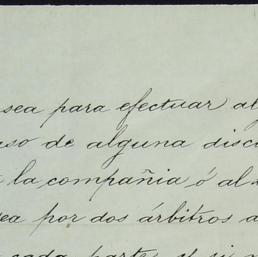 sea para efectuar al
uso de alguna disc
la compañia ó al
ea por dos árbitros a
cada parte, y si